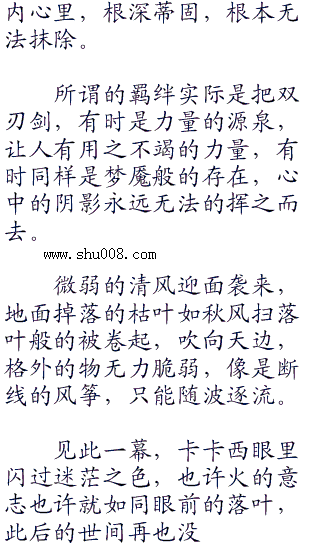 内心里，根深蒂固，根本无
法抹除。
所谓的羁绊实际是把双
刃剑，有时是力量的源泉，
让人有用之不竭的力量，有
时同样是梦魇般的存在，心
中的阴影永远无法的挥之而
去。
www.shu008.com
微弱的清风迎面袭来，
地面掉落的枯叶如秋风扫落
叶般的被卷起，吹向天边，
格外的物无力脆弱，像是断
线的风筝，只能随波逐流。
见此一幕，卡卡西眼里
闪过迷茫之色，也许火的意
志也许就如同眼前的落叶，
此后的世间再也没